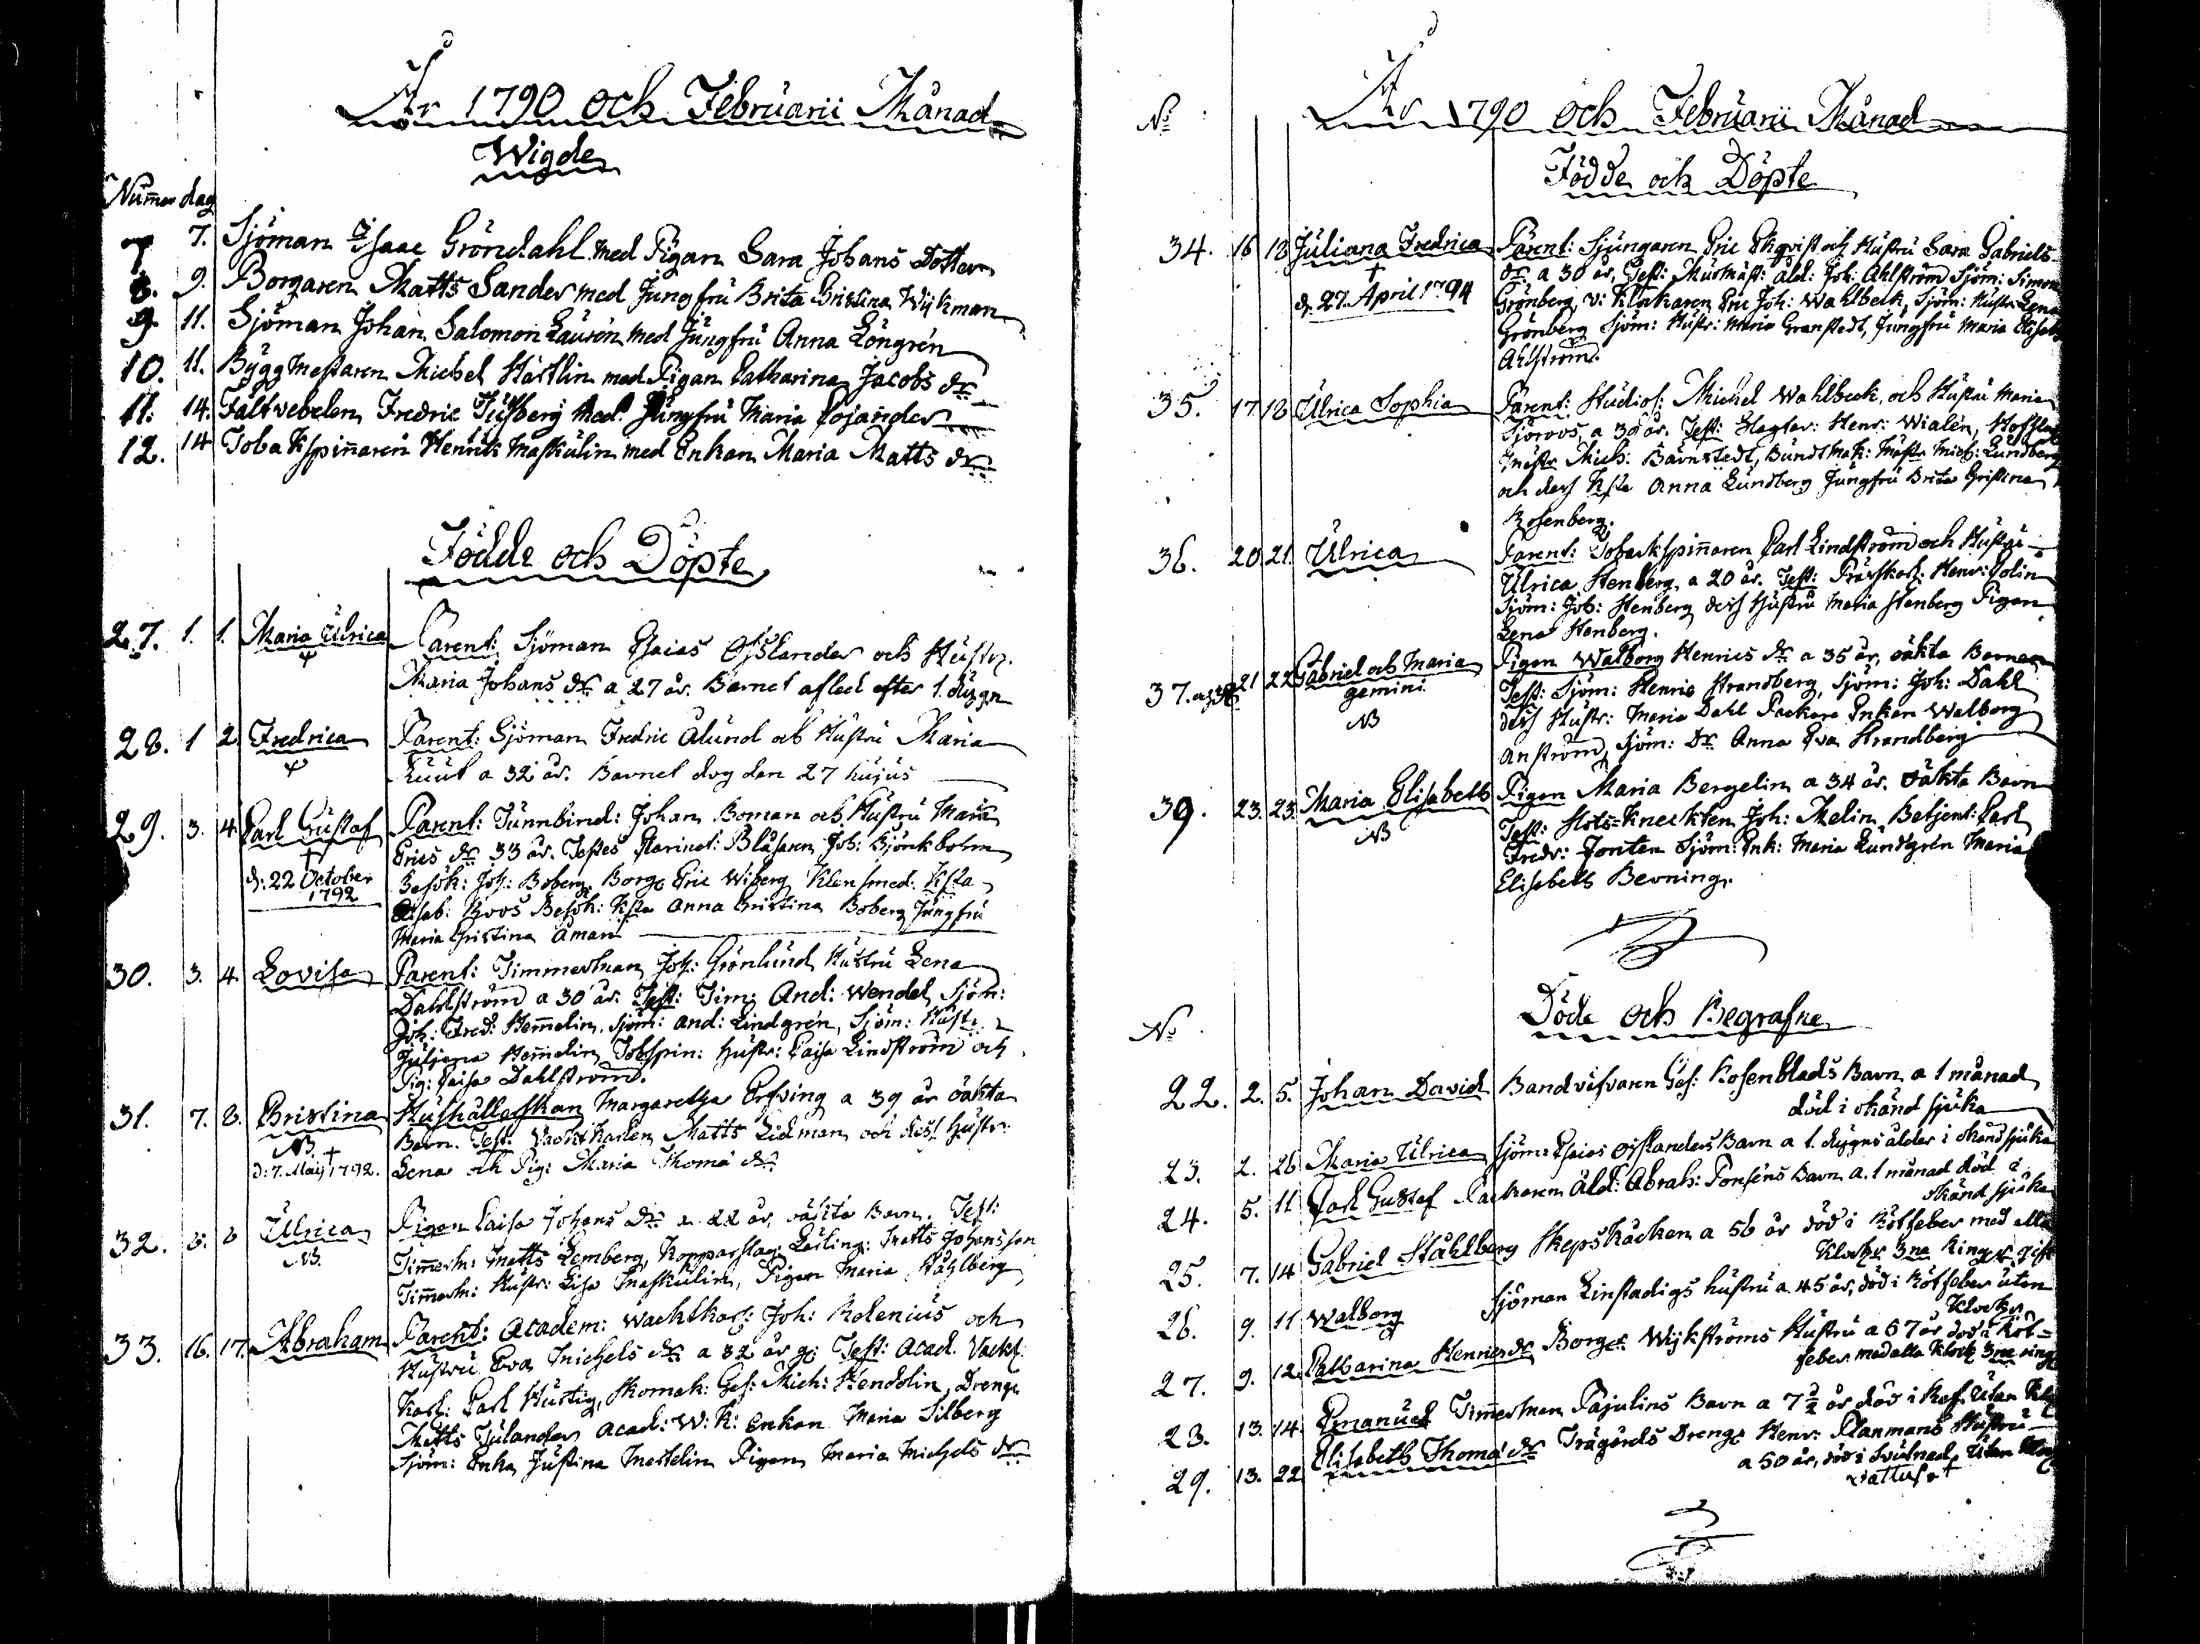 År 1790 och Februarii Månad
Wigde
Numer dag
7. 7. Sjöman Isaac Gröndahl med Pigan Sara Johans Dotter
8. 9. Borgaren Matts Sander med Jungfru Brita Cristina Wijkman
9. 11. Sjöman Johan Salomon Laurén med Jungfru Anna Löngrén
10. 11. Byggmestaren Michel Hartlin med Pigan Catharina Jacobs dr
11. 14. Fältvebelen Fredric Tidberg Med Jungfru Maria Cojander
12. 14 Tobakspinnaren Henrik Maskulin med Enkan Maria Matts dr
Födde och Döpte
27. 1. 1. Maria Ulrica Parent: Sjöman Esaias Öfslander och Hustr.
Maria Johans dr a 27 år. Barnet afled efter 1. dygn
28. 1 2 Fredrica Parent: Sjöman Fredric Alund och Hustru Maria
Luut a 32 år. Barnet dog den 27 hujus
29. 3. 4. Carl Gustaf Parent: Tunnbind: Johan Boman och Hustru Maria
Erics dr 33 år. Testes Clarinet: Blåsaren Joh: Björkbohm
d: 22 October
1792
Besök: Joh: Boberg, Borg: Eric Wiberg Klensmed: Hsta
Elisab: Roos Besök: Hsta Anna Cristina Boberg Jungfru
Maria Cristina Åman
30. 3. 4. Lovisa Parent: Timmerman Joh: Grönlund Hustru Lena
Dahlström a 30 år. Test: Tim: And: Wendel, Sjöm:
Joh: Fred: Hemmelin. Sjöm: And: Lindgrén, Sjöm: Hust:
Juliana Hemmelin Tobspin: Hustr: Caisa Lindström och
Pig: Caisa Dahlström.
31. 7. 8. Christina Hushållerskan Margaretha Erfving a 39 år oäkta
NB. †
d: 7. Maij 1792.
Barn. Test: Vachtkarlen Matts Lidman och dess Hustr:
Lena och Pig: Maria Thomæ dr
32. 8. 8 Ulrica Pigan Caisa Johans dr a 22 år, oäkta Barn. Test:
NB. Timmerm: Matts Lemberg, Kopparslag: Lärling: Matts Johansson
Timmerm: Hustr: Lisa Maskulin, Pigan Maria Ståhlberg
33. 16. 17. Abraham Parent: Academ: Wachtkarl: Joh: Rolenius och
Hustru Eva Michels dr a 32 år g: Test: Acad. Vacht
Karl: Carl Hurtig, Skomak: Ges: Mich: Hendolin, Drengn
Matts Julander Acad: W: K: Enkan Maria Silberg
Sjöm: Enka Justina Mertelin Pigan Maria Michels dr
No År 1790 och Februarii Månad
Födde och Döpte
34. 16 18 Juliana Fredrica Parent: Sjungaren Eric Ekqvist och Hustru Sara Gabriels
†
d. 27. April 1794
dr a 30 år. Test: Murmäst: Åld: Joh: Ahlström Sjöm: Simon
Grönberg, v: Klockaren Eric Joh: Wahlbeck, Sjöm: Hustr Lena
Grönberg Sjöm: Hustr: Maria Granstedt, Jungfru Maria Elisab
Ahlström.
35. 17. 18 Ulrica Sophia Parent: Studios: Michel Wahlbeck, och Hustru Maria
Sjöroos, a 30 år. Test: Slagtar: Henr: Wialén, Hofslag
Mästr Mich: Bärnstedt, Bundtmak: Mästr Mich: Lundberg
och dess Hsta Anna Lundberg Jungfru Brita Cristina
Rosenberg.
36. 20. 21. Ulrica Parent: Tobackspinnaren Carl Lindström och Hustru
Ulrica Stenberg, a 20 år. Test: Henr: Colin
Sjöm: Joh: Stenberg dess Hustru Maria Stenberg Pigan
Lena Stenberg.
37. och 38 21 22 Gabriel och Maria Pigan Walborg Henrics dr a 35 år, oäkta Barn
gemini
NB
Test: Sjöm: Henric Strandberg, Sjöm: Joh: Dahl
dess Hustr: Maria Dahl Packare Enkan Walborg
Anström, Sjöm: Dr Anna Eva Strandberg
39. 23. 23. Maria Elisabeth Pigan Maria Bergelin a 34 år. Oäkta Barn
NB Test: Slots-Kneckten Joh: Melin Betjent: Carl
Fredr: Fortten Sjöm: Enk: Maria Lundgrén Maria
Elisabeth Berning.
Döde och Begrafne
No
22. 2. 5. Johan David Bandväfvaren Ges: Rosenblads Barn a 1 månad
död i okänd sjuka
23. 2. 26 Maria Ulrica Sjöm: Esaias Öfslanders Barn a 1. dygns ålder i okänd sjuka
24. 5. 11 Carl Gustaf Packaren Åld: Abrah: Ponséns Barn a. 1 månad död i
okänd sjuka
25. 7. 14 Gabriel Ståhlberg Skepskäcken a 56 år död i Rötfeber med alla
Klockr 3ne Ringr gift
26. 9. 11 Walborg Sjöman Linstadigs hustru a 45 år, död i Rötfeber utan
Klockr
27. 9. 12. Catharina Henricsdr Borger Wijkströms Hustru a 67 år död i Röt-
feber med alla Klock 3ne ring
23. 13. 14 Emanuel Timmerman Pajulins Barn a 7 1/2 år död i Rötf. Utan Kl
29. 13. 22 Elisabeth Thomæ dr Trägårds Drenge Henr: Planmans Hustru
a 50 år, död i Svulnad Utan Klock